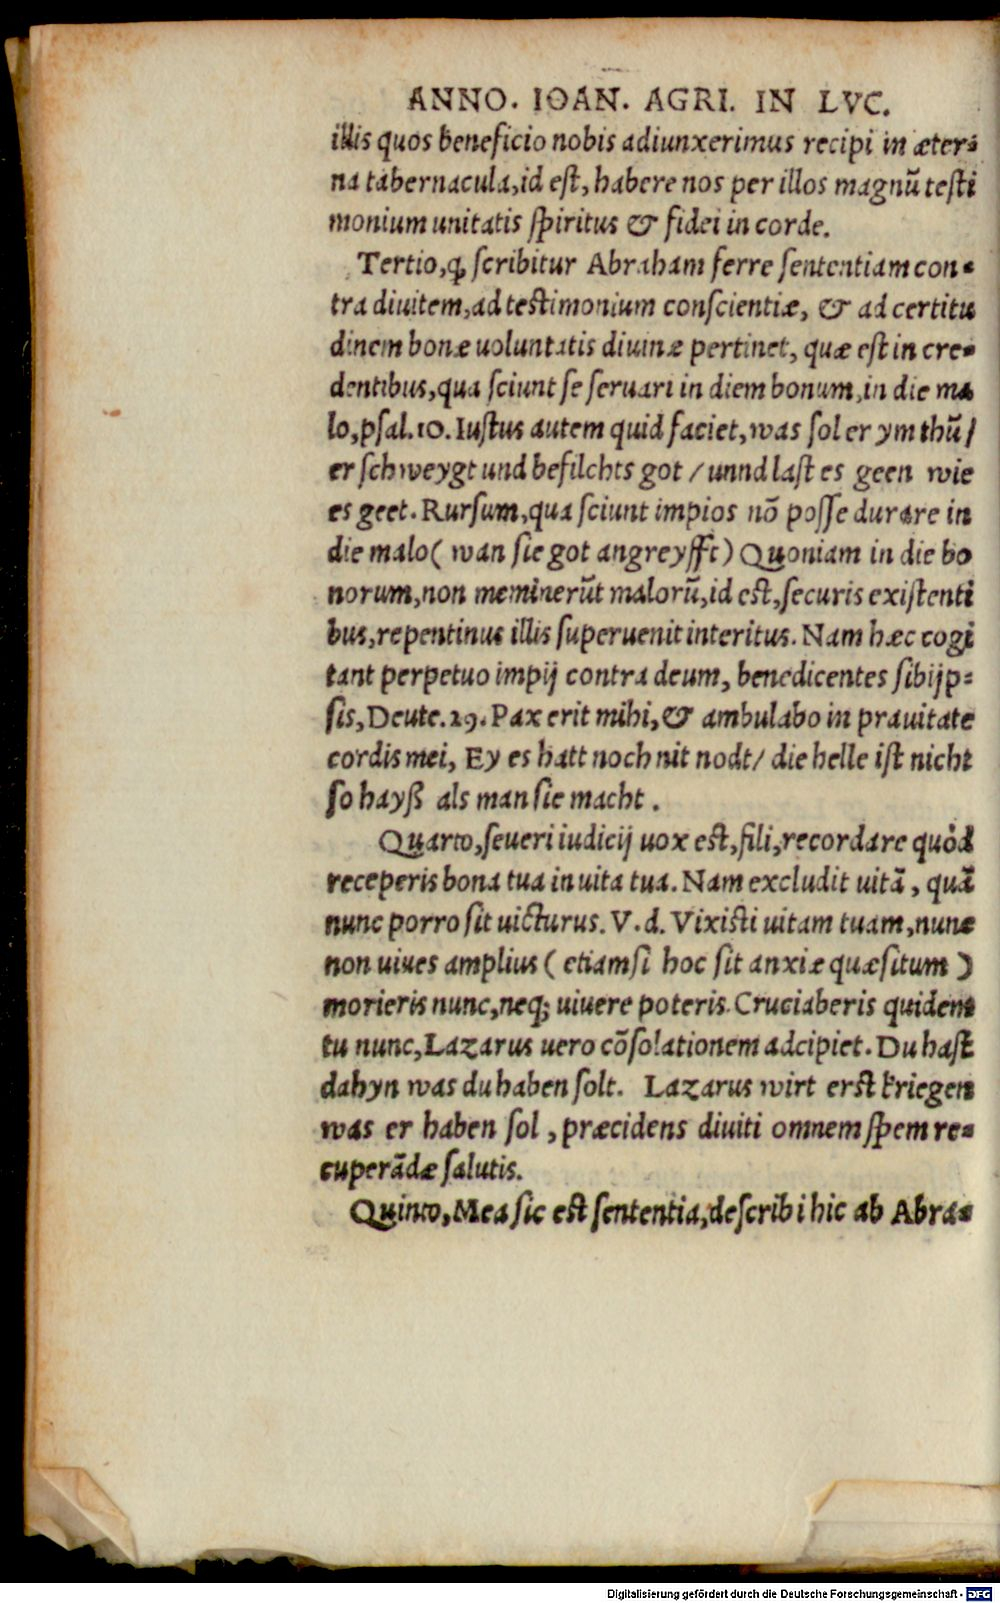 ANNO. IOAN. AGRI. IN LVC.
illis quos beneficio nobis adiunxerimus recipi in æter-
na tabernacula, id est, habere nos per illos magnũ testi
monium unitatis spiritus & fidei in corde.
Tertio, ꝙ scribitur Abraham ferre sententiam con-
tra diuitem, ad testimonium conscientiæ, & ad certitu
dinem bonæ uoluntatis diuinæ pertinet, quæ est in cre-
dentibus, qua sciunt se seruari in diem bonum, in die ma
lo, psal. 10. Iustus autem quid faciet, was sol er ym thũ/
er schweygt und befilchts got / unnd last es geen wie
es geet. Rursum, qua sciunt impios nõ posse durare in
die malo ( wan sie got angreyfft ) Quoniam in die bo
norum, non meminerũt malorũ, id est, securis existenti
bus, repentinus illis superuenit interitus. Nam hæc cogi
tant perpetuo impij contra deum, benedicentes sibijp-
sis, Deute. 29. Pax erit mihi, & ambulabo in prauitate
cordis mei, Ey es hatt noch nit nodt/ die helle ist nicht
so hayß als man sie macht.
Quarto, seueri iudicij uox est, fili, recordare quòd
receperis bona tua in uita tua. Nam excludit uitã, quã
nunc porro sit uicturus. V. d. Vixisti uitam tuam, nunc
non uiues amplius ( etiamsi hoc sit anxiæ quæsitum )
morieris nunc, neq; uiuere poteris. Cruciaberis quidem
tu nunc, Lazarus uero cõsolationem adcipiet. Du hast
dahyn was du haben solt. Lazarus wirt erst kriegen
was er haben sol, præcidens diuiti omnem spem re-
cuperãdæ salutis.
Quinto, Mea sic est sententia, describi hic ab Abra-
Digitalisierung gefördert durch die Deutsche Forschungsgemeinschaft - DFG